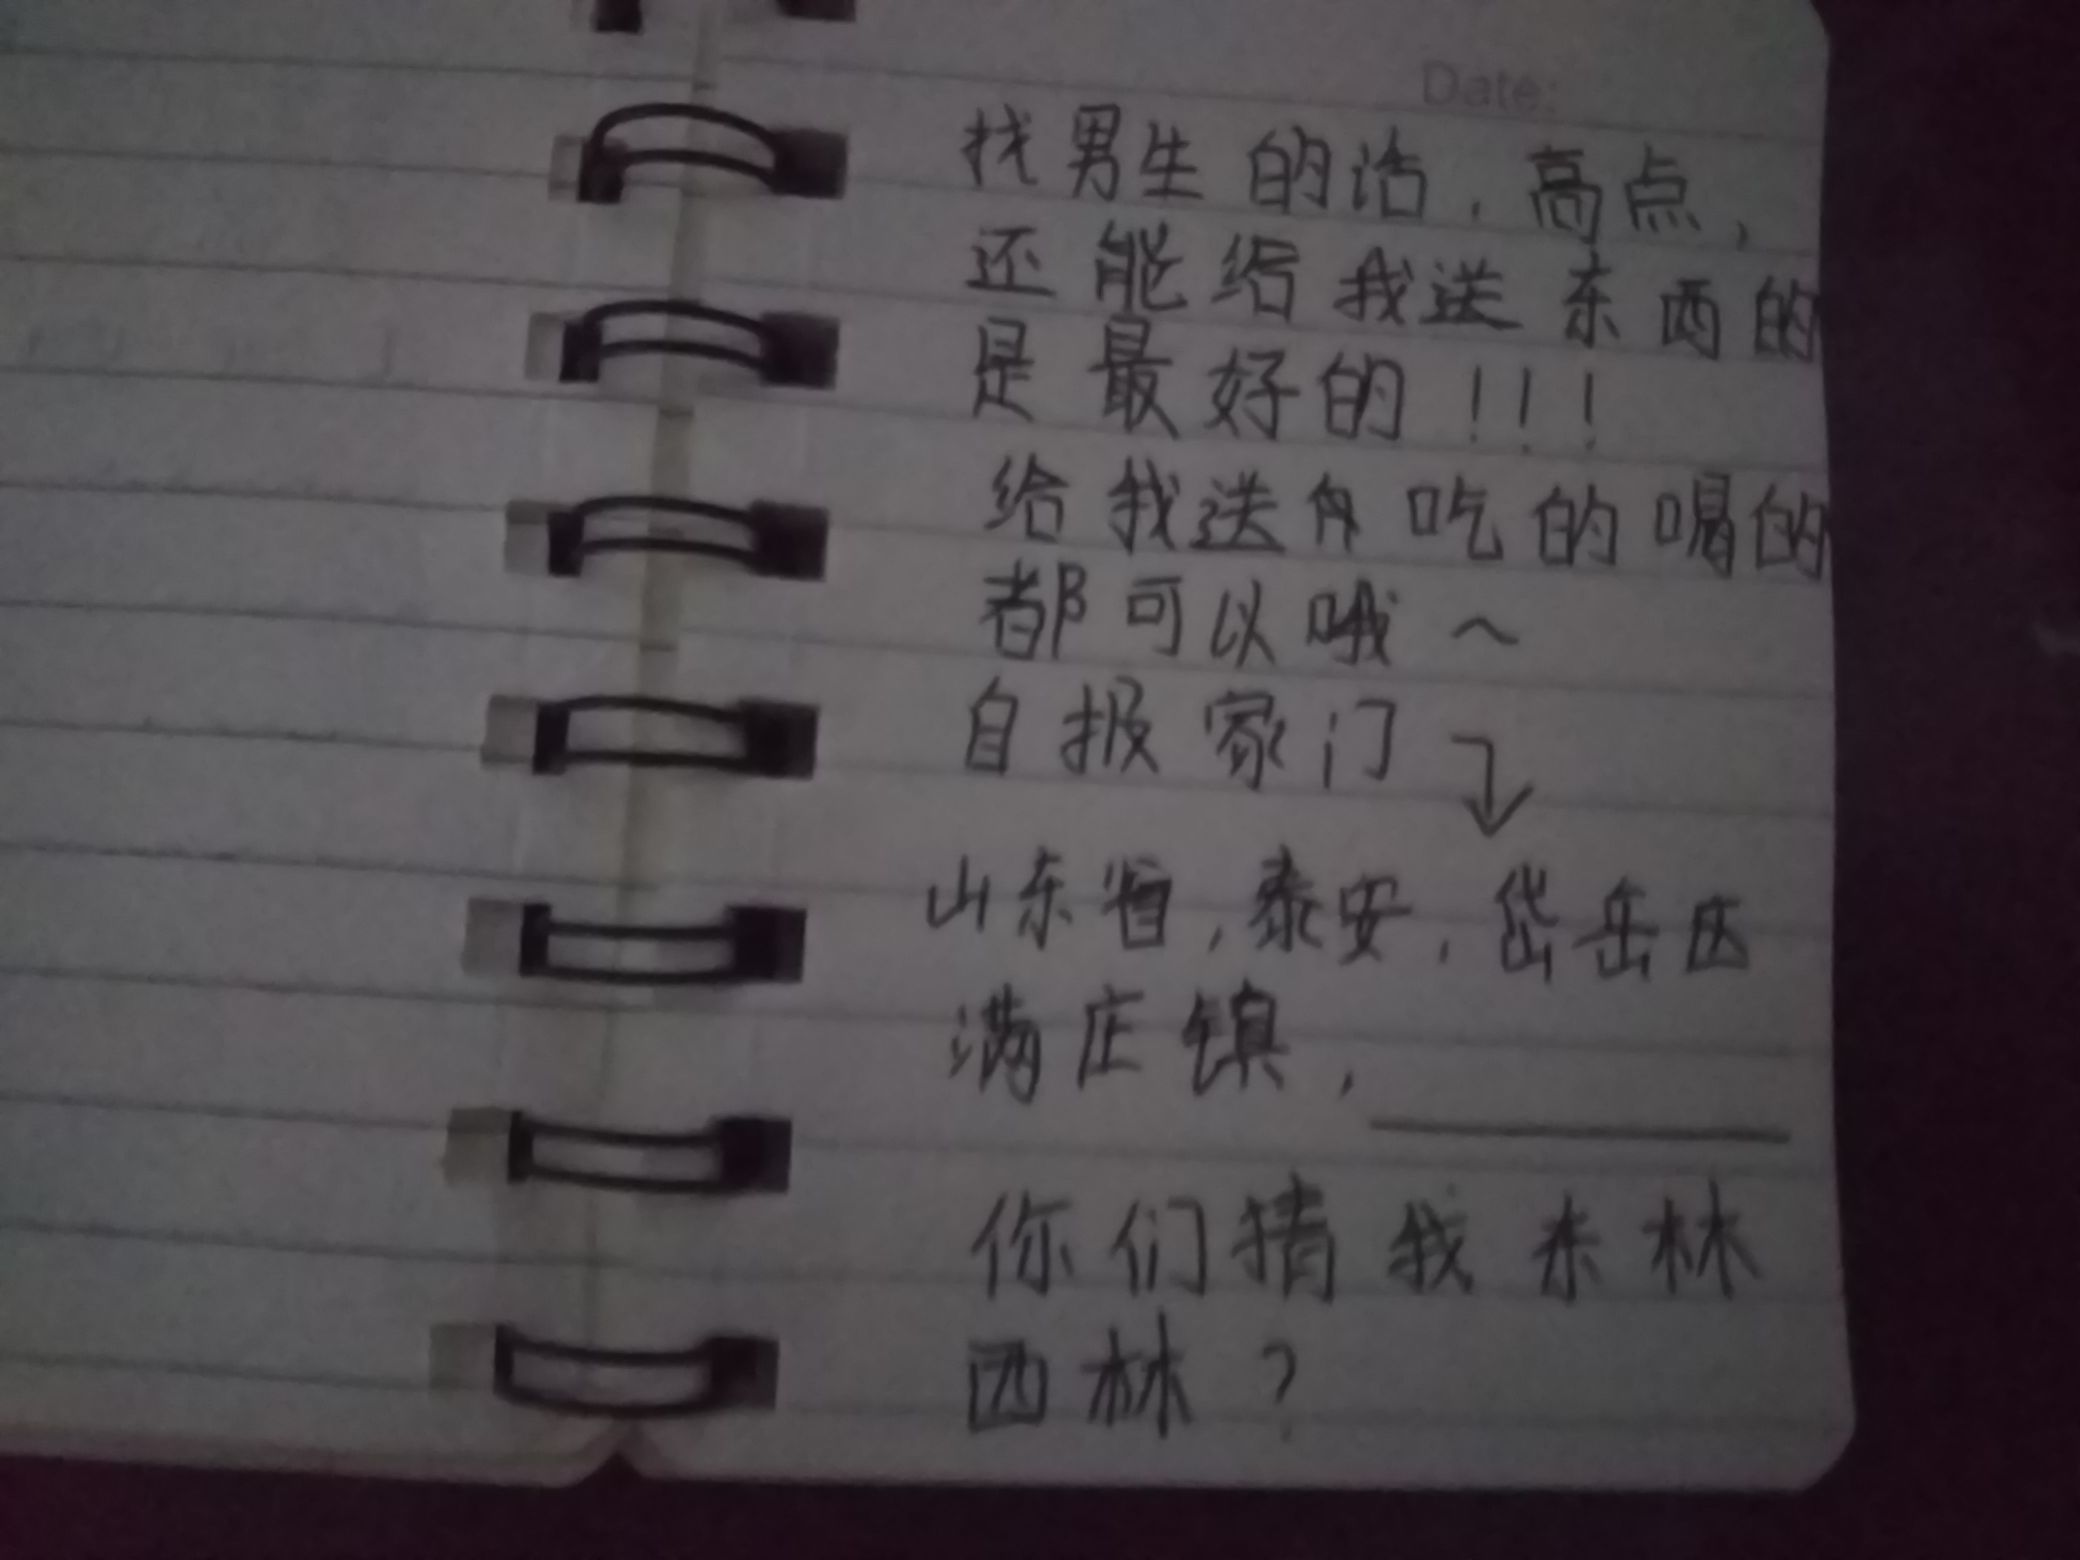 Date:
找男生的话,高点,
还能给我送东西的
是最好的!!!
给我送吃的喝的
都可以哦~
自报家门
山东省,泰安,岱岳区
满庄镇,
你们猜我东林
西林?